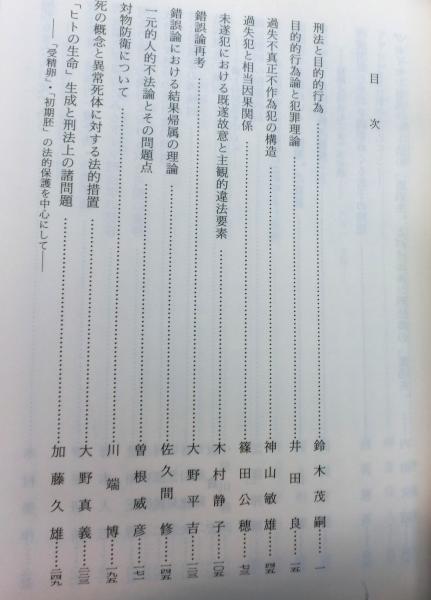 目次
刑法と目的的行為……鈴木茂嗣……一
目的的行為論と犯罪理論……井田良……一五
過失不真正不作為犯の構造……神山敏雄……四五
過失犯と相当因果関係……篠田公穂……七三
未遂犯における既遂故意と主観的違法要素……木村静子……一〇五
錯誤論再考……大野平吉……一二三
錯誤論における結果帰属の理論……佐久間修……一四五
一元的人的不法論とその問題点……曽根威彦……一七一
対物防衛について……川端博……一九五
死の概念と異常死体に対する法的措置……大野真義……二二三
「ヒトの生命」生成と刑法上の諸問題……加藤久雄……二四九
――「受精卵」・「初期胚」の法的保護を中心にして――